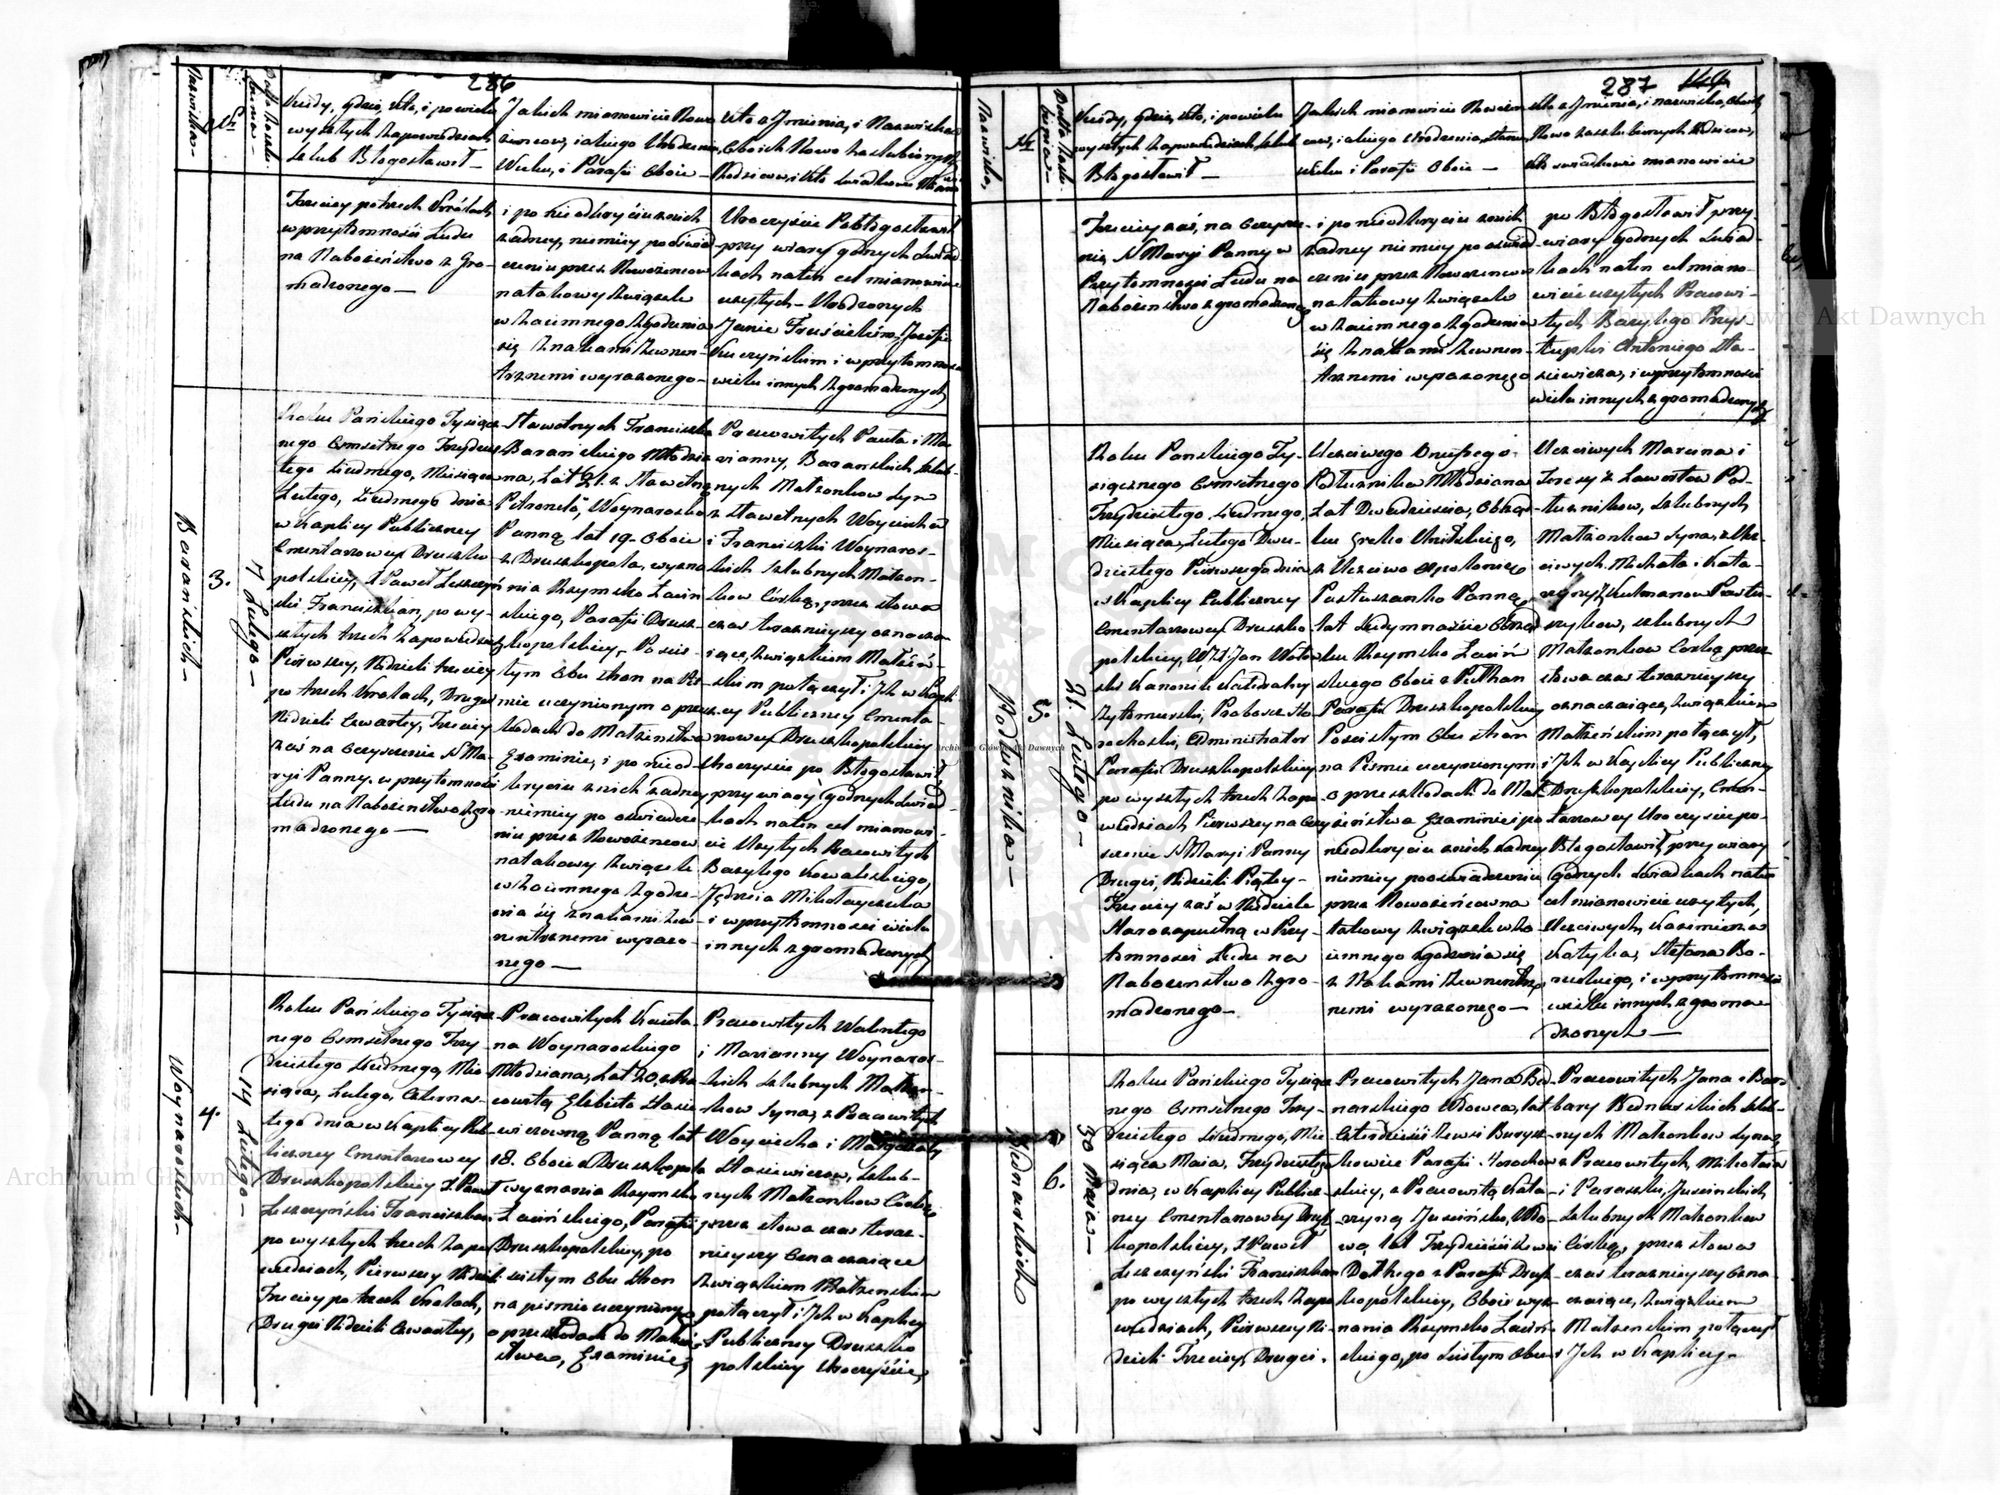 286
Nazwisko
№
Data
Kiedy, gdzie, kto, i po wielu
wyszłych zapowiedziach
szlub Błogosławił —
Jakich mianowicie Nowo
żeńcow, i akiego Urodzenia,
Wieku, i Parafii Oboie —
Kto z Jmienia, i Nazwiska
Oboich Nowo zaszlubionych
Rodzicow, i kto swiadkowie
Trzeciey po trzech Krolach
w przytomności Ludu
na Nabożeństwo z Gro-
madzonego —
i po nieodkryciu znich
żadney, niemiey poświad
czeniu przez Nowożeńcow
natakowy związek
wzaiemnego zgodzenia
się znakami zewnen-
trznemi wyrażonego —
Uroczyście Pobłogosławił
przy wiary godnych świad
kach naten cel mianowicie
użytych — Urodzonych
Janie
Kuczyńskim i w przytomności
wielu innych zgromadzonych
Baranskich —
3.
7 Lutego —
Roku Pańskiego Tysiącz-
nego Ośmsetnego Trzydzies
tego Siudmego, Miesiąca
Lutego, Siudmego dnia
w Kaplicy Publiczney
Cmentarzowey Druszko
polskiey, X Paweł Leszczyń
ski Franciszkan, po wy-
szłych trzech zapowiedziach
Pierwszey, Niedzieli trzeciey
po trzech Krolach, Drugiey
Niedzieli Czwartey, Trzeciey
zaś na Oczyszczenie N Ma-
ryi Panny, w przytomności
Ludu na Nabożeństwo zgro
madzonego —
Sławetnych Franciszka
Baranskiego Młodzia
na, Lat 21. z Sławetną
Petronelą, Woynarosko
Panną lat 19. Oboie
z Druszkopola, wyzna
nia Rzymsko Łacin
skiego, Parafii Drusz-
kopolskiey, Poscis-
łym Obu stron na Piś-
mie uczynionym o przesz-
kodach do Małzeństwa
Examinie, i po nieod-
kryciu znich żadney
niemiey po oswiadcze-
niu przez Nowożeńcow
natakowy związek
wzaiemnego zgodze-
nia się znakami zew-
nentrznemi wyrażo-
nego —
Pracowitych Pawła i Ma-
ryanny, Baranskich szlub-
nych Małżonkow Syn
z Sławetnych Woyciecha
i Franciszki Woynaros-
kich szlubnych Małżon-
kow Córkę, przez słowa
czas teraznieyszy oznacza-
iące, związkiem Małżeń-
skim połączył i Jch w Kapli
cy Publiczney Cmenta-
rzowey Druszkopolskiey
Uroczyście po Błogosławił
przy wiary godnych świad-
kach naten cel mianowi-
cie Użytych Pracowitych
Bazylego Kowalskiego,
Jędrzeia Mikołayczuka
i w przytomności wielu
innych zgromadzonych
Woynaroskich —
4.
14 Lutego —
Roku Pańskiego Tysiącz-
nego Ośmsetnego Trzy
dziestego Siudmego, Mie-
siąca, Lutego, Czternas-
tego dnia w Kaplicy Pub-
liczney Cmentarzowey
Druszkopolskiey X Paweł
Leszczyński Franciszkan
po wyszłych trzech zapo
wiedziach, Pierwszey Niedzieli
Trzeciey po trzech Krolach,
Drugiey Niedzieli Czwartey,
Pracowitych Kaieta-
na Woynaroskiego
Młodziana, Lat 20, z Pra
cowitą Elżbieto Stasie
wiczowną Panną lat
18. Oboie z Druszkopola
wyznania Rzymsko
Łacińskiego, Parafii
Druszkopolskiey, po
scisłym Obu Stron
na piśmie uczyniony
o przeszkodach do Małżeń-
stwa, Examinie,
Pracowitych Walentego
i Maryanny Woynaros-
kich szlubnych Małżon-
kow Syna, z Pracowitych
Woyciecha i Małgorzaty
Stasiewiczow, szlub-
nych Małżonkow Córkę
przez słowa czas teraz-
nieyszy Oznaczaiące
Związkiem Małżenskim
połączył i Jch w Kaplicy
Publiczney Druszko
polskiey Uroczyście,
287
Nazwisko,
№
Kiedy, gdzie, kto, i powielu
wyszłych zapowiedziach, szlub
Błogosławił —
Jakich mianowicie Nowożeń
cow, i akiego Urodzenia, Stanu
Wieku i Parafii Oboie —
Kto z Jmienia, i nazwiska, Oboich
Nowo zaszlubionych Rodzicow,
kto swiadkowie mianowicie
Trzeciey zaś, na Oczyszcze-
nie, N Maryi Panny w
Przytomności Ludu na
Nabożeństwo zgromadzonego
i po nieodkryciu znich
żadney niemiey poswiad
czeniu przez Nowożencow
na takowy związek
wzaiemnego zgodzenia
się znakami zewnen-
trznemi wyrażonego
po Błogosławił przy-
wiary godnych swiad-
kach naten cel miano-
wicie użytych Pracowi-
tych Bazylego Przys-
tupki Antoniego Sta-
siewicza, i w przytomności
wielu innych zgromadzonych
Podluznika —
5.
21 Lutego —
Roku Pańskiego Ty-
siącznego Ośmsetnego
Trzydziestego Siudmego,
Miesiąca, Lutego Dwu-
dziestego Pierwszego dnia
w Kaplicy Publiczney
Cmentarzowey Druszko
polskiey, WX Jan
Kanonik Katedralny
Żytomirski, Proboszcz Ho-
rochoski, Administrator
Parafii Druszkopolskiey
po wyszłych trzech zapo
wiedziach Pierwszey na Oczy
szczenie N Maryi Panny
Drugiey, Niedzieli Piątey
Trzeciey zaś w Niedziele
Starozapustną w Przy-
tomności Ludu na
Nabożenstwo zgro-
madzonego —
Uczciwego Onufrego
Podluznika Młodziana
Lat Dwadziescia, Obrząd-
ku Greko Unitskiego,
z Uczciwo Apolonieo
Pastuszanko Panną
lat siedymnaście Obrząd
ku Rzymsko Łacin
skiego Oboie z Pułhan
Parafii Druszkopolskiey
Poscisłym Obu stron
na Piśmie uczynionym
o przeszkodach do Mał-
żeństwa Examinie i po
nieodkryciu znich żadney
niemiey poosviadczeniu
przez Nowożencow na
takowy związek wza
iemnego zgodzenia się
z znakami zewnentrz
nemi wyrażonego —
Uczciwych Marcina i
Teresy z Ławortow Pod-
łuznikow, szlubnych
Małżonkow Syna, z Ucz-
ciwych, Michała i Kata-
rzyny, Kulmanow Pastu-
szykow, szlubnych
Małżonkow Corkę przez
słowa czas teraznieyszy
oznaczaiące, związkiem
Małżeńskim połączył,
i Jch w Kaplicy Publiczney
Druszkopolskiey, Cmen-
tarzowey Uroczyście po-
Błogosławił, przy wiary
godnych swiadkach naten
cel mianowicie użytych,
Uczciwych, Kazimierza
Stefana
i w przytomności
wielu innych zgroma
dzonych —
Bednarskich
6.
30 Maia —
Roku Pańskiego Tysiącz
nego Ośmsetnego Trzy-
dziestego Siudmego, Mie-
siąca Maia, Trzydziestego
dnia, w Kaplicy Publicz-
ney Cmentarzowey Drusz-
kopolskiey, X Paweł
Leszczyński Franciszkan
po wyszłych trzech zapo
wiedziach, Pierwszey Nie-
dzieli Trzeciey, Drugiey.
Pracowitych Jana Bed-
narskiego Wdowca, lat
Czterdzieści zewsi
Parafii Horocho-
skiey, z Pracowitą Kata-
rzyną Juscińsko, Wdo-
wą lat Trzydzieści zewsi
z Parafii Drusz-
kopolskiey, Oboie wyz-
nania Rzymsko Łacin-
skiego, po scisłym Obu
Pracowitych Jana i Bar-
bary Bednarskich szlub-
nych Małżonkow Syna,
z Pracowitych, Mikołaia
i Paraszki, Juscinskich
szlubnych Małżonkow
Córkę, przez słowa
czas teraznieyszy Ozna-
czaiące, związkiem
Małżenskim połączył
i Jch w Kaplicy —
Archiwum Główne Akt Dawnych
Archiwum Główne Akt Dawnych
Archiwum Główne Akt Dawnych